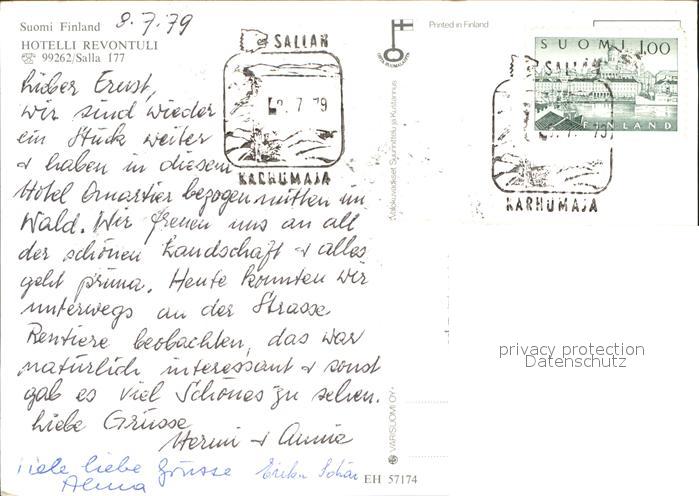 Suomi Finland 8.7.79
HOTELLI REVONTULI
☎ 99262/Salla 177
Lieber Ernst,
wir sind wieder
ein Stück weiter
+ haben in diesem
Hotel Quartier bezogen mitten im
Wald. Wir freuen uns an all
der schönen Landschaft + alles
geht prima. Heute konnten wir
unterwegs an der Strasse
Rentiere beobachten, das war
natürlich interessant + sonst
gab es viel Schönes zu sehen.
Liebe Grüsse
Hermi + Annie
Viele liebe Grüsse Erika
Alma
EH 57174
© VARISUOMI OY
Valokuvadiset Suunnittelu ja Kustannus
Printed in Finland
SALLAN
7.79
KARHUMAJA
SUOMI 1,00
FINLAND
SALLAN
7.79
KARHUMAJA
privacy protection
Datenschutz